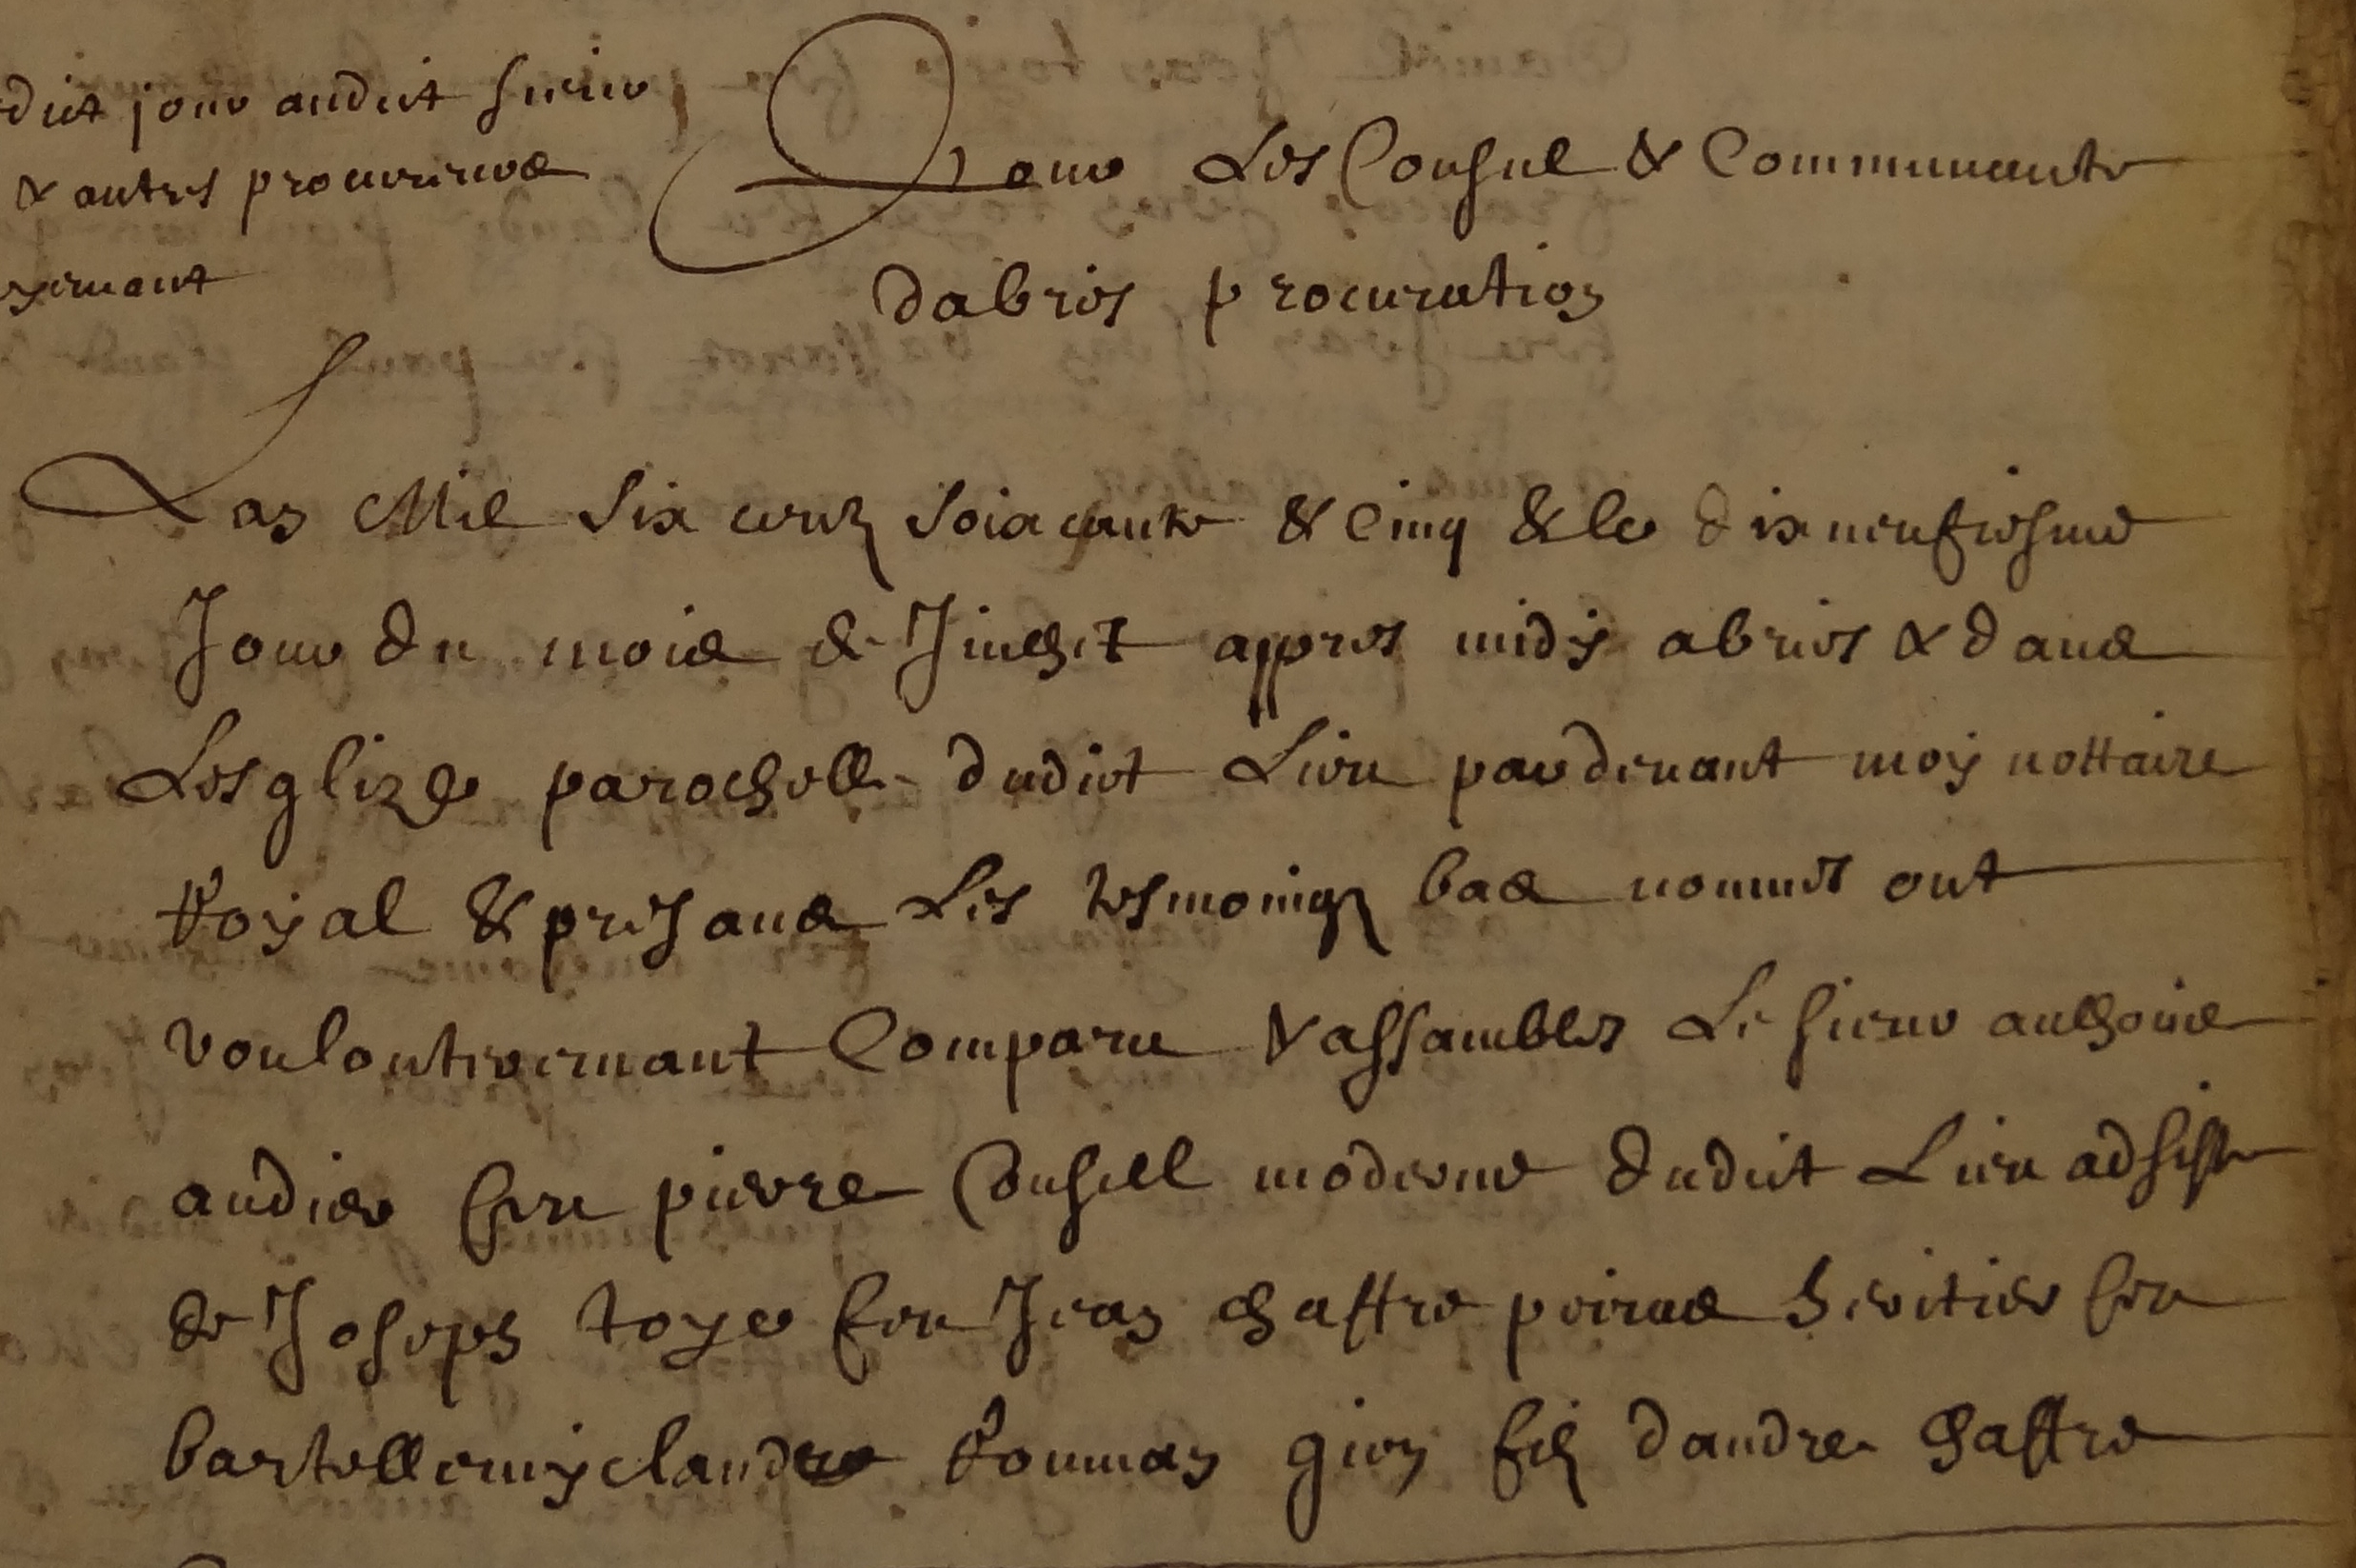 dict jour audict sieur
& autres procureurs
Pour Les Consul & Communaute
dabries procuration
Lan Mil six centz soiacante & cinq & le dixneufiesme
Jour du mois de Juihet appres midy abries & dans
Lesglize parochelle dudict Lieu pardevant moy nottaire
Royal & presans Les tesmoings bas nommes ont
voulontieremant Comparu & assambles Le sieur anthoine
audier feu pierre Consul moderne dudict Lieu adsiste
de Joseph toye feu Jean chaffre peiras heritier feu
bartellemy claude Rouman gien filz dandre chaffre